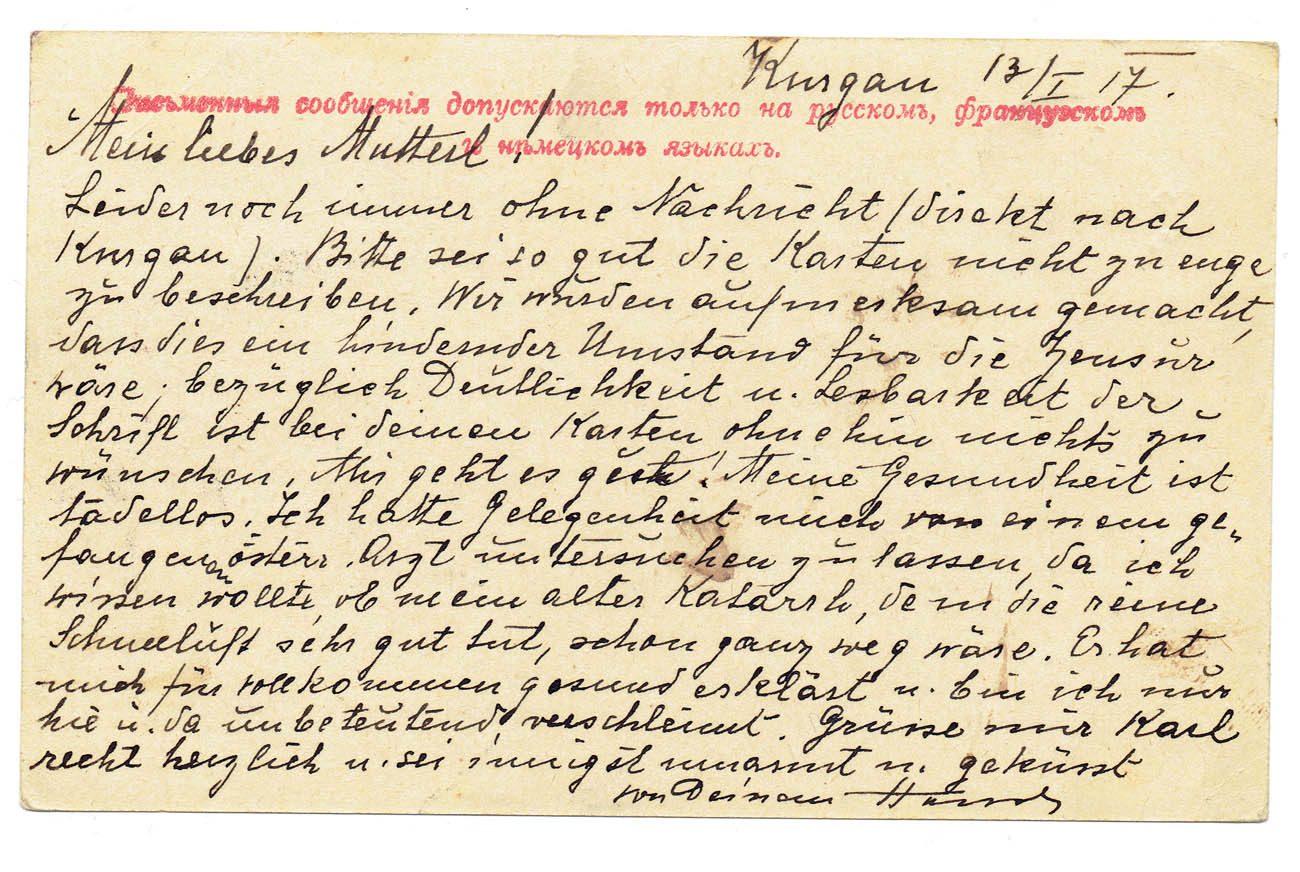 Kurgan 13/I 17.
Письменныя сообщенія допускаются только на русскомъ, французскомъ
и нѣмецкомъ языкахъ.
Mein liebes Mutterl!
Leider noch immer ohne Nachricht (direkt nach
Kurgan). Bitte sei so gut die Karten nicht zu enge
zu beschreiben. Wir wurden aufmerksam gemacht,
dass dies ein hindernder Umstand für die Zensur
wäre; bezüglich Deutlichkeit u. Lesbarkeit der
Schrift ist bei deinen Karten ohnehin nichts zu
wünschen. Mir geht es gut! Meine Gesundheit ist
tadellos. Ich hatte Gelegenheit mich von einem ge-
fangenen österr. Arzt untersuchen zu lassen, da ich
wissen wollte, ob mein alter Katarrh, dem die reine
Schneeluft sehr gut tut, schon ganz weg wäre. Er hat
mich für vollkommen gesund erklärt u. bin ich nur
hie u. da unbeteutend verschleimt. Grüsse mir Karl
recht herzlich u. sei innigst umarmt u. geküsst
von Deinem